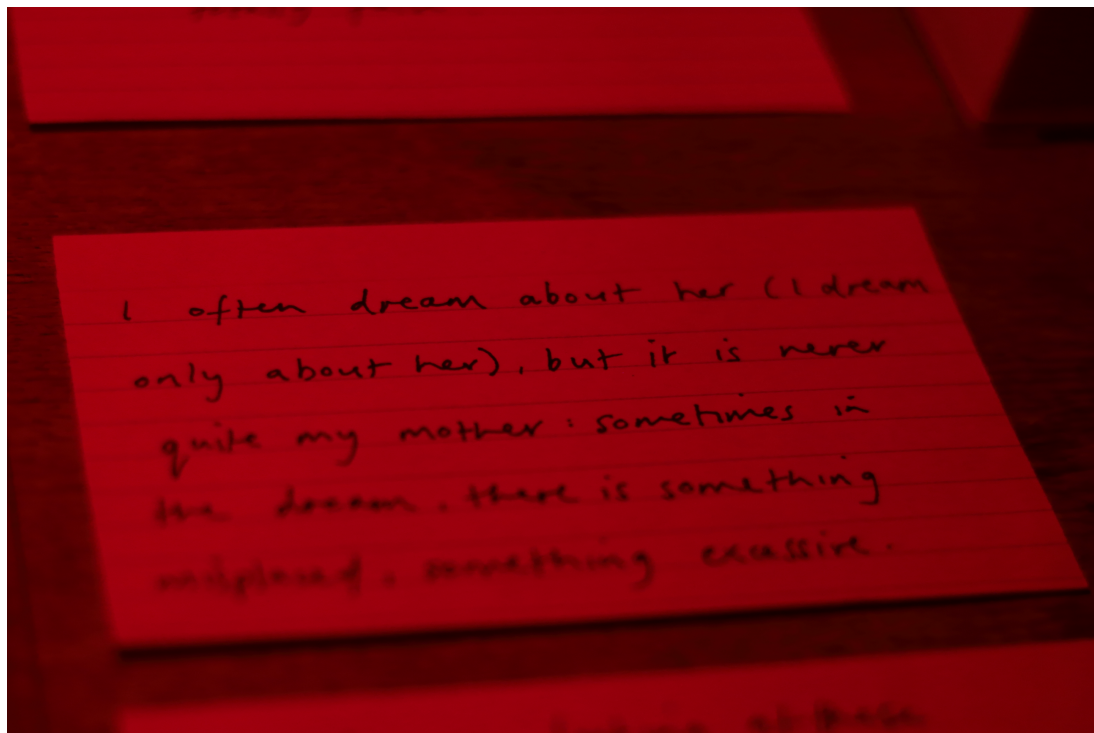 I often dream about her (I dream
only about her), but it is never
quite my mother: sometimes in
the dream, there is something
misplaced, something excessive.